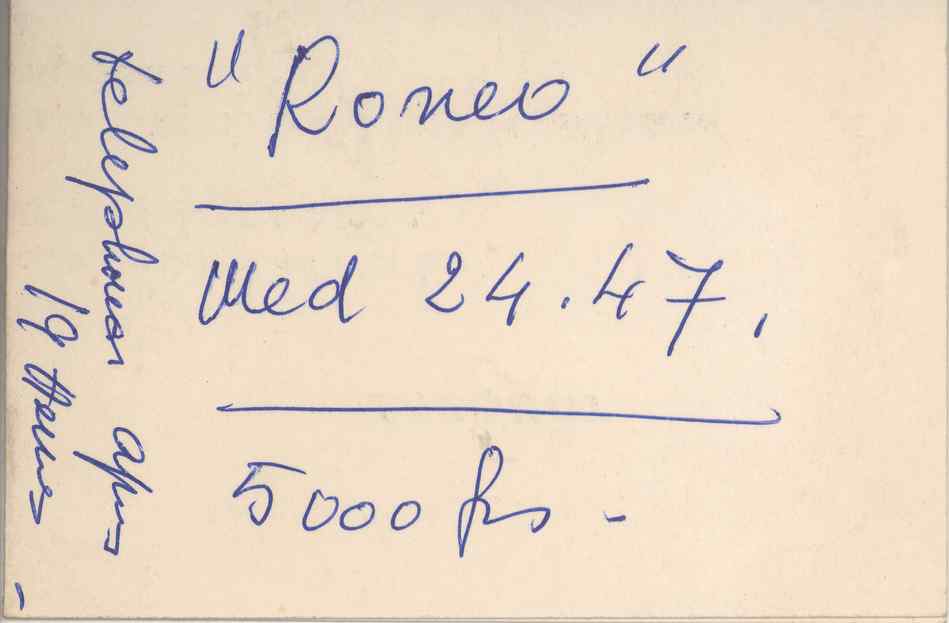 "Romeo"
Med 24.47.
5000 frs -
telephoner apres
19 Heures -